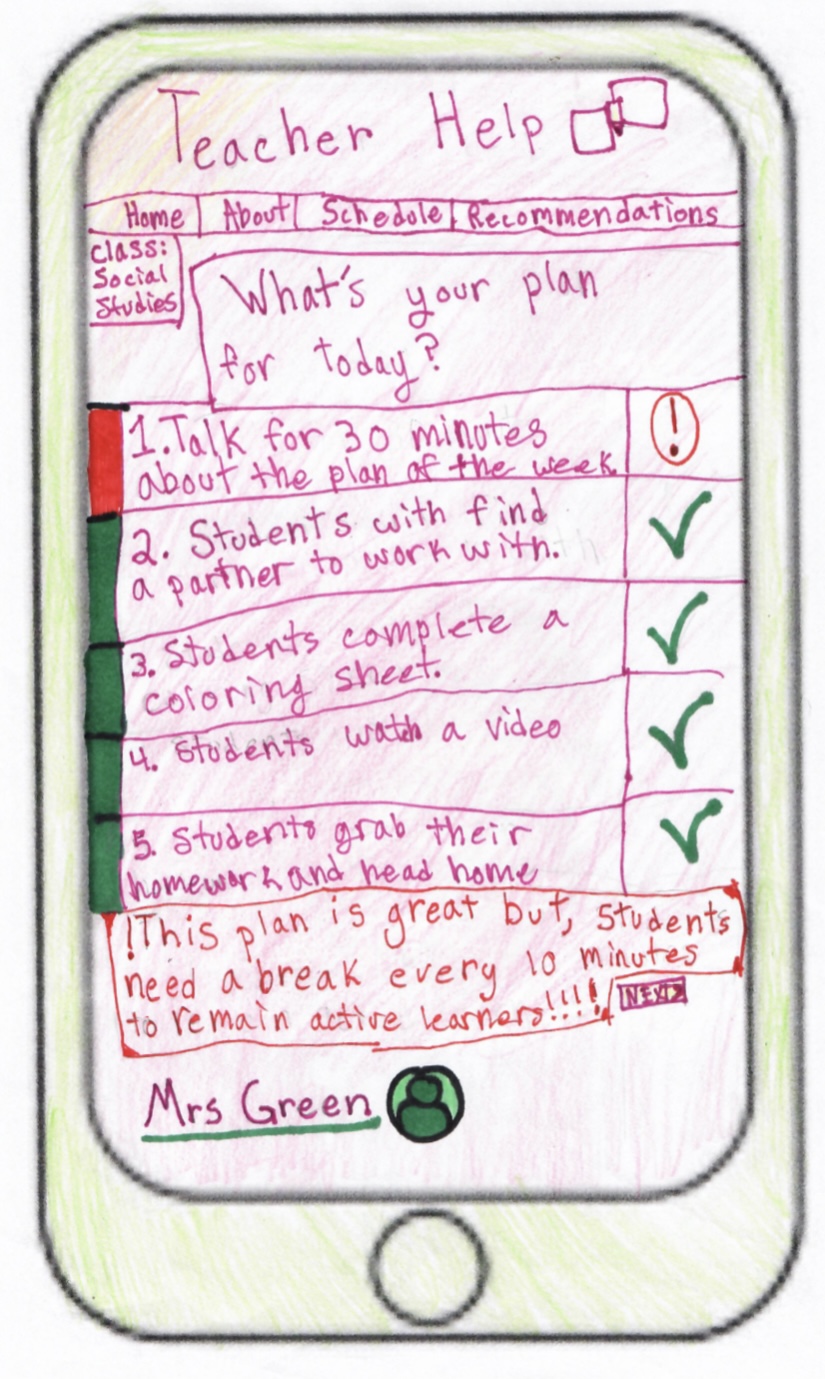 Teacher Help
Home About Schedule Recommendations
Class:
Social
Studies
What's your plan
for today?
1. Talk for 30 minutes
about the plan of the week.
!
2. Students with find
a partner to work with.
3. Students complete a
coloring sheet.
4. Students watch a video
5. Students grab their
homework and head home
!This plan is great but, students
need a break every 10 minutes
to remain active learners!!!!
NEXT
Mrs Green